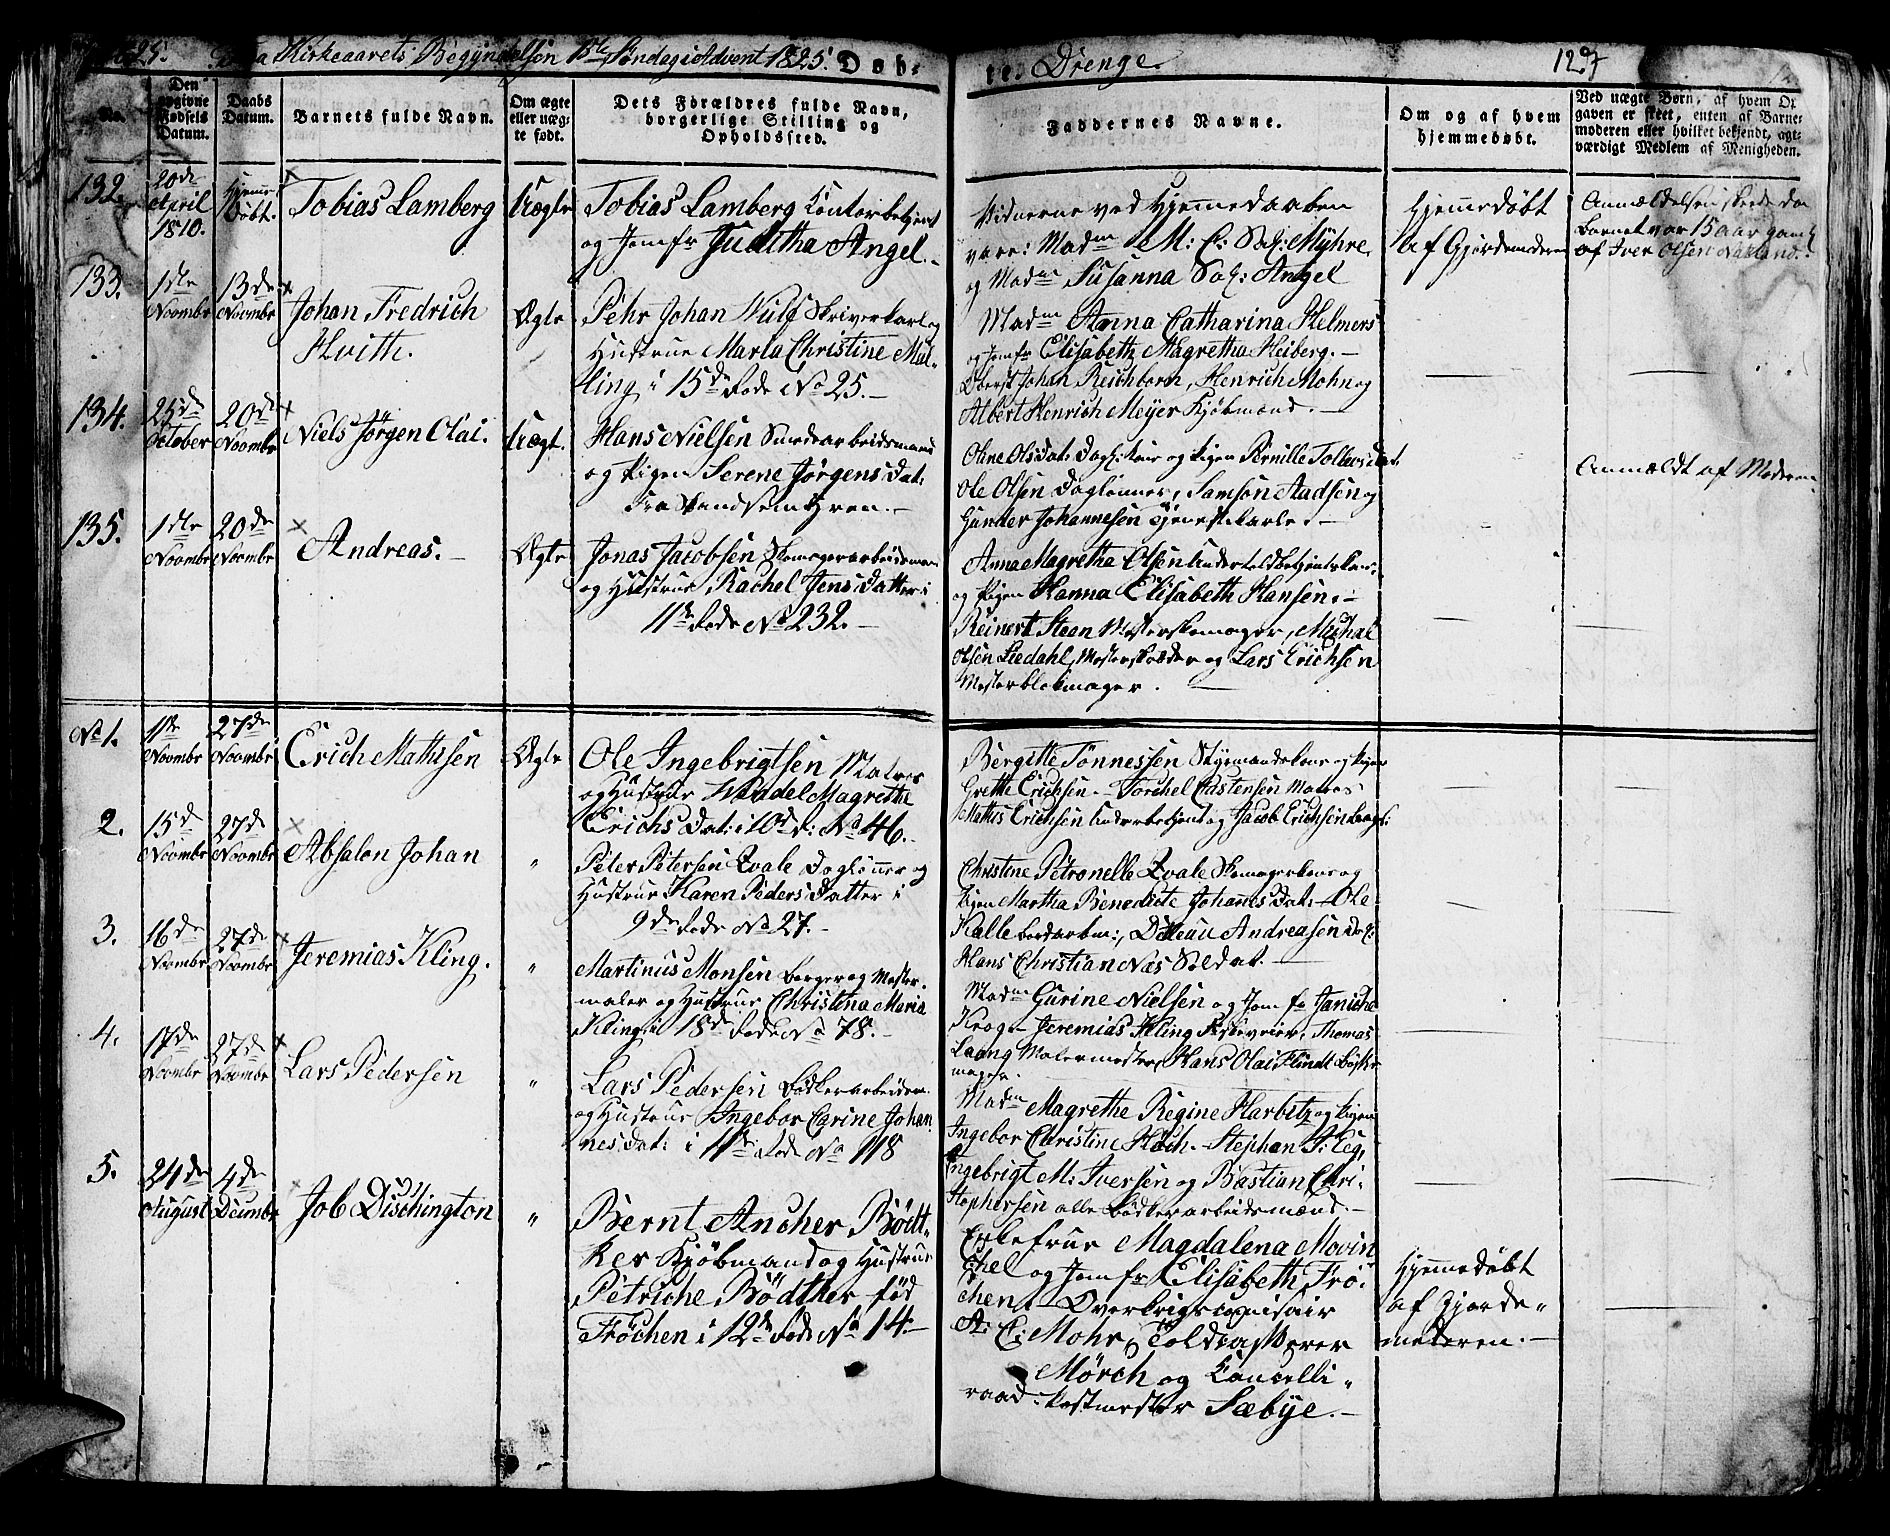 1825. Fra Kirkeaarets Begyndelsen 1ste Søndag i Advent 1825. Døb-
te. Drenge. 127
No.
Den opgivne Fødsels Datum.
Daabs Datum.
Barnets fulde Navn.
Om ægte eller uægte født.
Dets Forældres fulde Navn, borgerlige Stilling og Opholdssted.
Faddernes Navne.
Om og af hvem hjemmedøbt.
Ved uægte Børn, af hvem Opgaven er skeet, enten af Barnemoderen eller hvilket bekjendt, agtværdigt Medlem af Menigheden.
132. 20de April 1810. Hjemmedøbt. Tobias Lamberg Uægte
Tobias Lamberg Contorbetjent
og Jomfr Juditha Angel.-
Vidnerne ved Hjemmedaaben
vare: Madm M: C: Sal: Myhre
og Madm Susanna Sal: Angel
Hjemmedøbt
af Gjordemoderen
Anmeldelsen skeede da
Barnet var 15 aar gam̄l
af Iver Olsen
133. 1ste Novembr 13de Novembr Johan Fredrich
Hvith. Ægte
Pehr Johan Skriverkarl og
Hustrue Maria Christine Mal-
ling i 15de Rode No 25.-
Madm Anna Catharina Helmers
og Jomfr Elisabeth Magretha Heiberg.-
Oberst Johan Reichborn, Henrich Mohn og
Albert Henrich Meyer Kjøbmænd.-
134. 25de October 20de Novembr Niels Jørgen Olai. Uægt.
Hans Nielsen Smedearbeidsmand
og Pigen Serene Jørgens Dat:
fra
Oline Ols Dat: Dagl: Kone og Pigen Pernille Tollevs Dat:
Ole Olsen Dagleiner, Samson Aadsen og
Gunder Johannesen Tjenestekarle.-
Anmeldt af Moderen
135. 1ste Novembr 20de Novembr Andreas.- Ægte
Jonas Jacobsen Skomagerarbeidsmand
og Hustrue Rachel Jens Datter i
11te Rode No 232.-
Anna Magretha Olsen Undertoldbetjentskone,
og Pigen Hanna Elisabeth Hansen.-
Reinert Steen Mesterskomager, Michal
Olsen Liedahl, Mesterskræder og Lars Erichsen
Mesterblokmager.
No 1. 1ste Novembr 27de Novembr Erich Mathisen Ægte
Ole Ingebrigtsen Matros
og Hustrue Wendel Magrethe
Erichs Dat: i 10de R: No 46.-
Bergitte Tønnessen Styrmandskone og Pigen
Grethe Erichsen.- Torchel Castensen Matros
Mathis Erichsen Underbetjent og Jacob Erichsen
2. 15de Novembr 27de Novembr Absalon Johan "
Peter Petersen Qvale Dagleiner og
Hustrue Karen Peders Datter i
9de Rode No 27.-
Christine Petronelle Qvale Skomagerkone og
Pigen Martha Benedicte Johannes Dat: - Ole
Kalle Bordarbm:, Andreasen
Hans Christian Næs Soldat.
3. 16de Novembr 27de Novembr Jeremias Kling. "
Martinus Monsen Borger og Mester-
maler og Hustrue Christina Maria
Kling i 18de Rode No 78.-
Madm Gurine Nielsen og Jomfr Janiche
Krog.- Jeremias Kling Thomas
Laang Malermester, Hans Olai Flindt Bøsse-
mager.
4. 17de Novembr 27de Novembr Lars Pedersen "
Lars Pedersen Bødkerarbeidsm
og Hustrue Ingebor Carine Johan
nes Dat: i 11te Rode No 118
Madm Magrethe Regine Harbitz og Pigen
Ingebor Christine Höch.- Stephan P: Eeg,
Ingebrigt M: Iversen og Bastian Chri-
stophersen alle Bødkerarbeidsmænd.-
5. 24de August 4de Decembr Job Dischington "
Bernt Ancher Bødt-
ker Kjøbmand og Hustrue
Petriche Bødtker fød
Frøchen i 12te Rode No 14.-
Enkefrue Magdalena Mowin
Ehel og Jomfr Elisabeth Frø-
chen.- Overkrigscommissair
A. C. Mohr, Toldcasserer
Mörch og Cancelli-
raad Postmester Sæbye.-
Hjemmedøbt
af Gjorde-
moderen.-